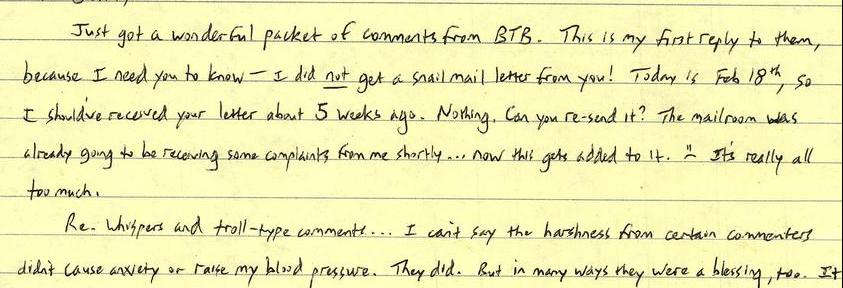 Just got a wonderful packet of comments from BTB. This is my first reply to them,
because I need you to know — I did not get a snail mail letter from you! Today is Feb 18th, so
I should've received your letter about 5 weeks ago. Nothing. Can you re-send it? The mailroom was
already going to be receiving some complaints from me shortly... now this gets added to it. It's really all
too much.
Re. Whispers and troll-type comments... I can't say the harshness from certain commenters
didn't cause anxiety or raise my blood pressure. They did. But in many ways they were a blessing, too. It